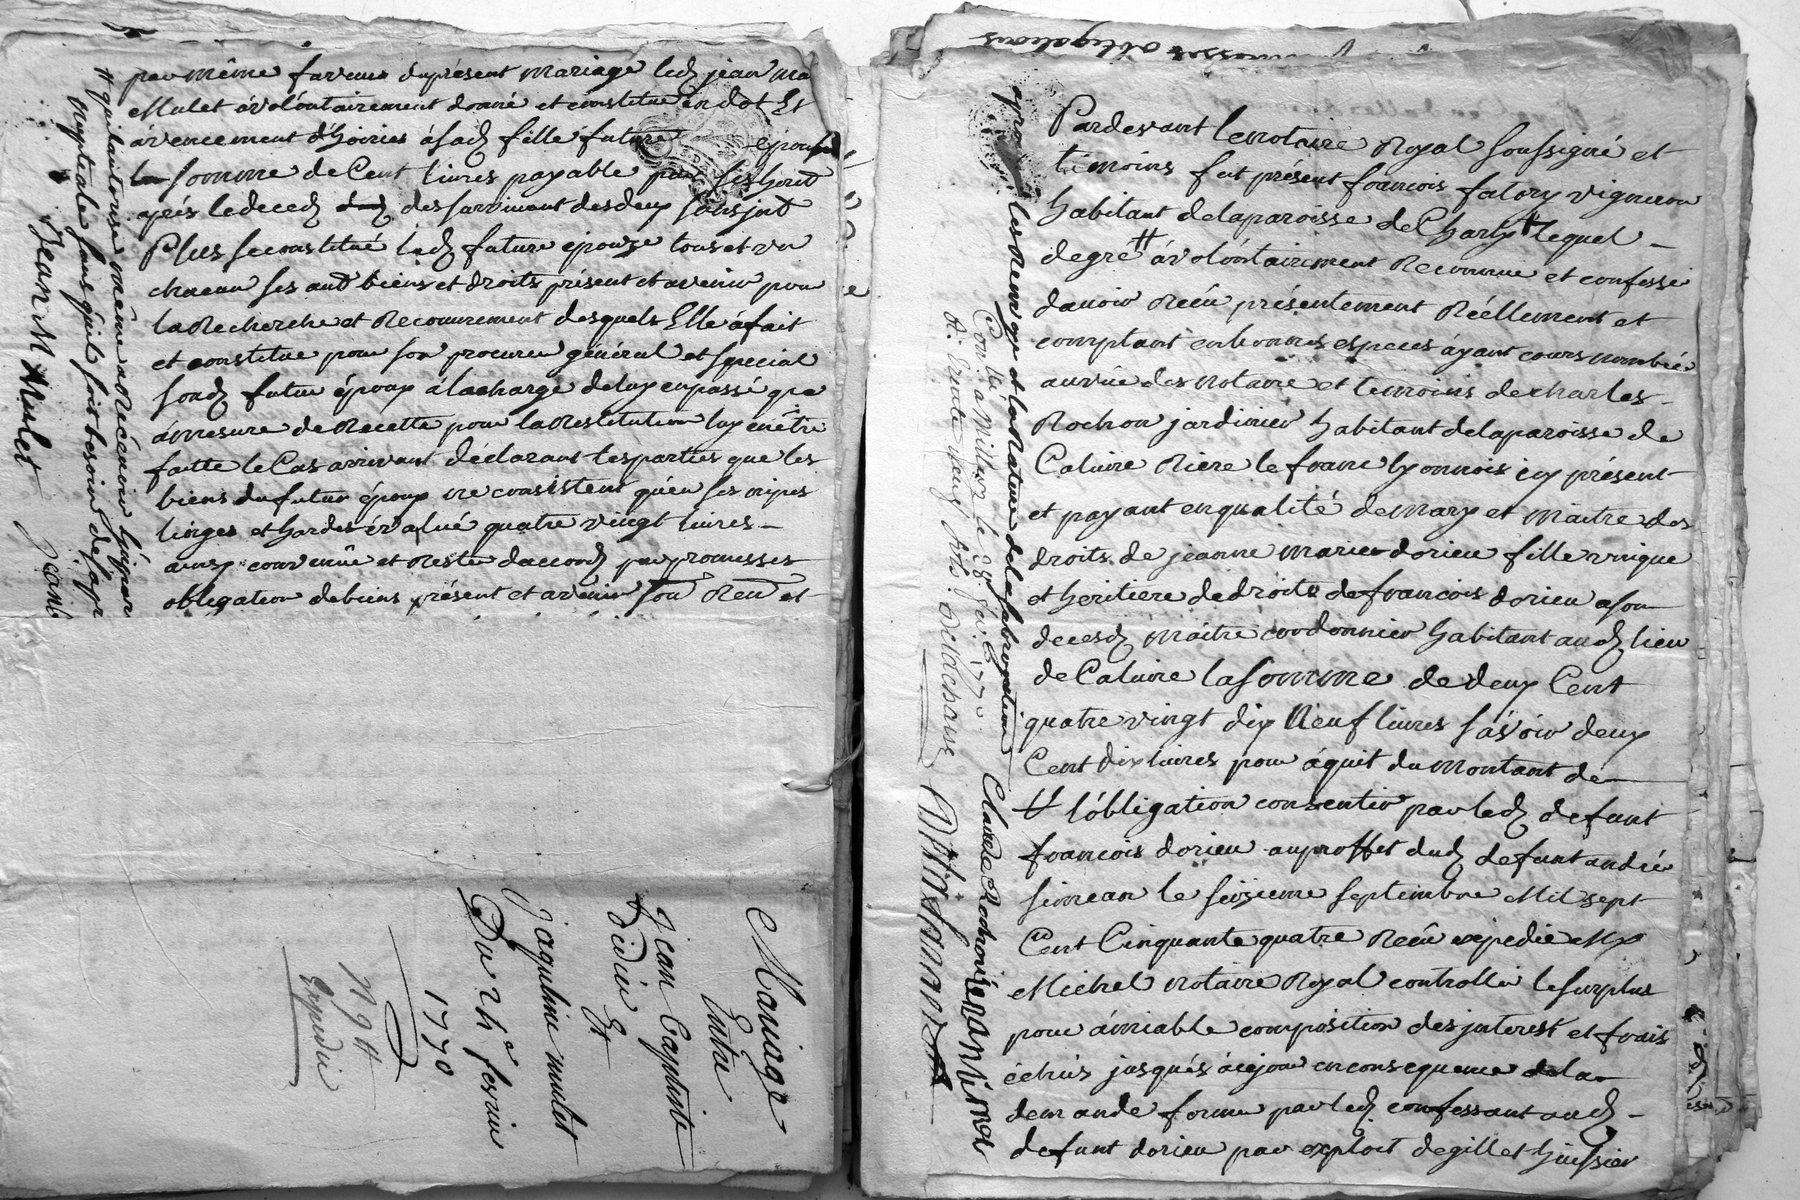 par même faveur du présent mariage led. jean ma
Mulet a volontairement donné et constitue en dot et
avencement d'hoiries á sad. fille future épouse
la somme de Cent livres payable par ses hoirs
aprés le deced. des survivant des deux
Plus se constitué lad. future épouze tous et un
chacun ses autres biens et droits présent et avenir pour
la Recherche et Recouvrement desquels Elle a fait
et constitue pour son procureur général et special
sond. futur époux á la charge de luy en passé que
á mesure de Recette pour la Restitution luy en être
faitte le Cas arrivant déclarant les parties que les
biens du futur époux ne consistent qu'en ses nipes
linges et hardes évalué quatre vingt livres
ainsy convenu et Reste d'accord par promesses
obligation de biens présent et avenir et
# qui l'autorise même a Récévoir
Nuptiale sans qu'il soit besoin de
Jean M Mulet
Mariage
Entre
jean Baptiste
Didier
Et
jaqueline mulet
Du 24e fevrier
1770
N 9
Expedié
Pardevant le notaire Royal soussigné et
témoins fut présent francois falory vigneron
habitant de la paroisse de Charly # lequel
de gré # á volontairement Reconnu et confessé
d'avoir Recu présentement Réellement et
comptant en bonnes especes áyant cours nombrée
au vue des notaire et temoins de charles
Rochon jardinier habitant de la paroisse de
Caluire Riere le franc lyonnois icy présent
et payant en qualité de mary et Maitre des
droits de jeanne marie dorieu fille unique
et heritiere de droits de francois dorieu a son
decesd. Maitre cordonnier habitant aud. lieu
de Caluire la somme de deux Cent
quatre vingt dix Neuf livres sávoir deux
Cent dix livres pour áquit du Montant de
# l'obligation consentir par led. defunt
francois dorieu au proffet dud. defunt andré
simean le septembre Mil sept
Cent Cinquante quatre Recu expedie Me
Michel notaire Royal controllé le surplus
pour ámiable composition des interest et frais
échus jusqués á ce jour en consequence de la
demande formé par led. confessant aud.
defunt dorieu par exploit de gillet huissier
et la Rature de la subrogation
Con. a Millery le 28 1770
R. trente
Claude Rochon